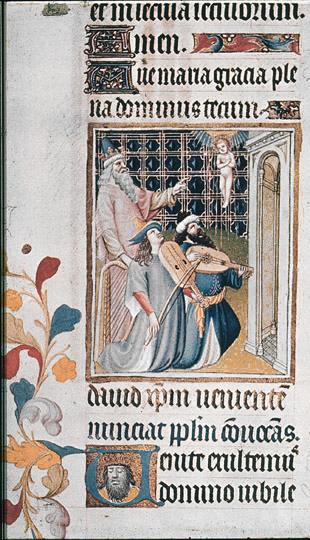 et in secula seculorum.
Amen.
Aue maria gracia ple
na dominus tecum.
dauid xp̄m uenientē
nunciat pp̄lm cōuocās.
Uenite exultemus
domino iubile